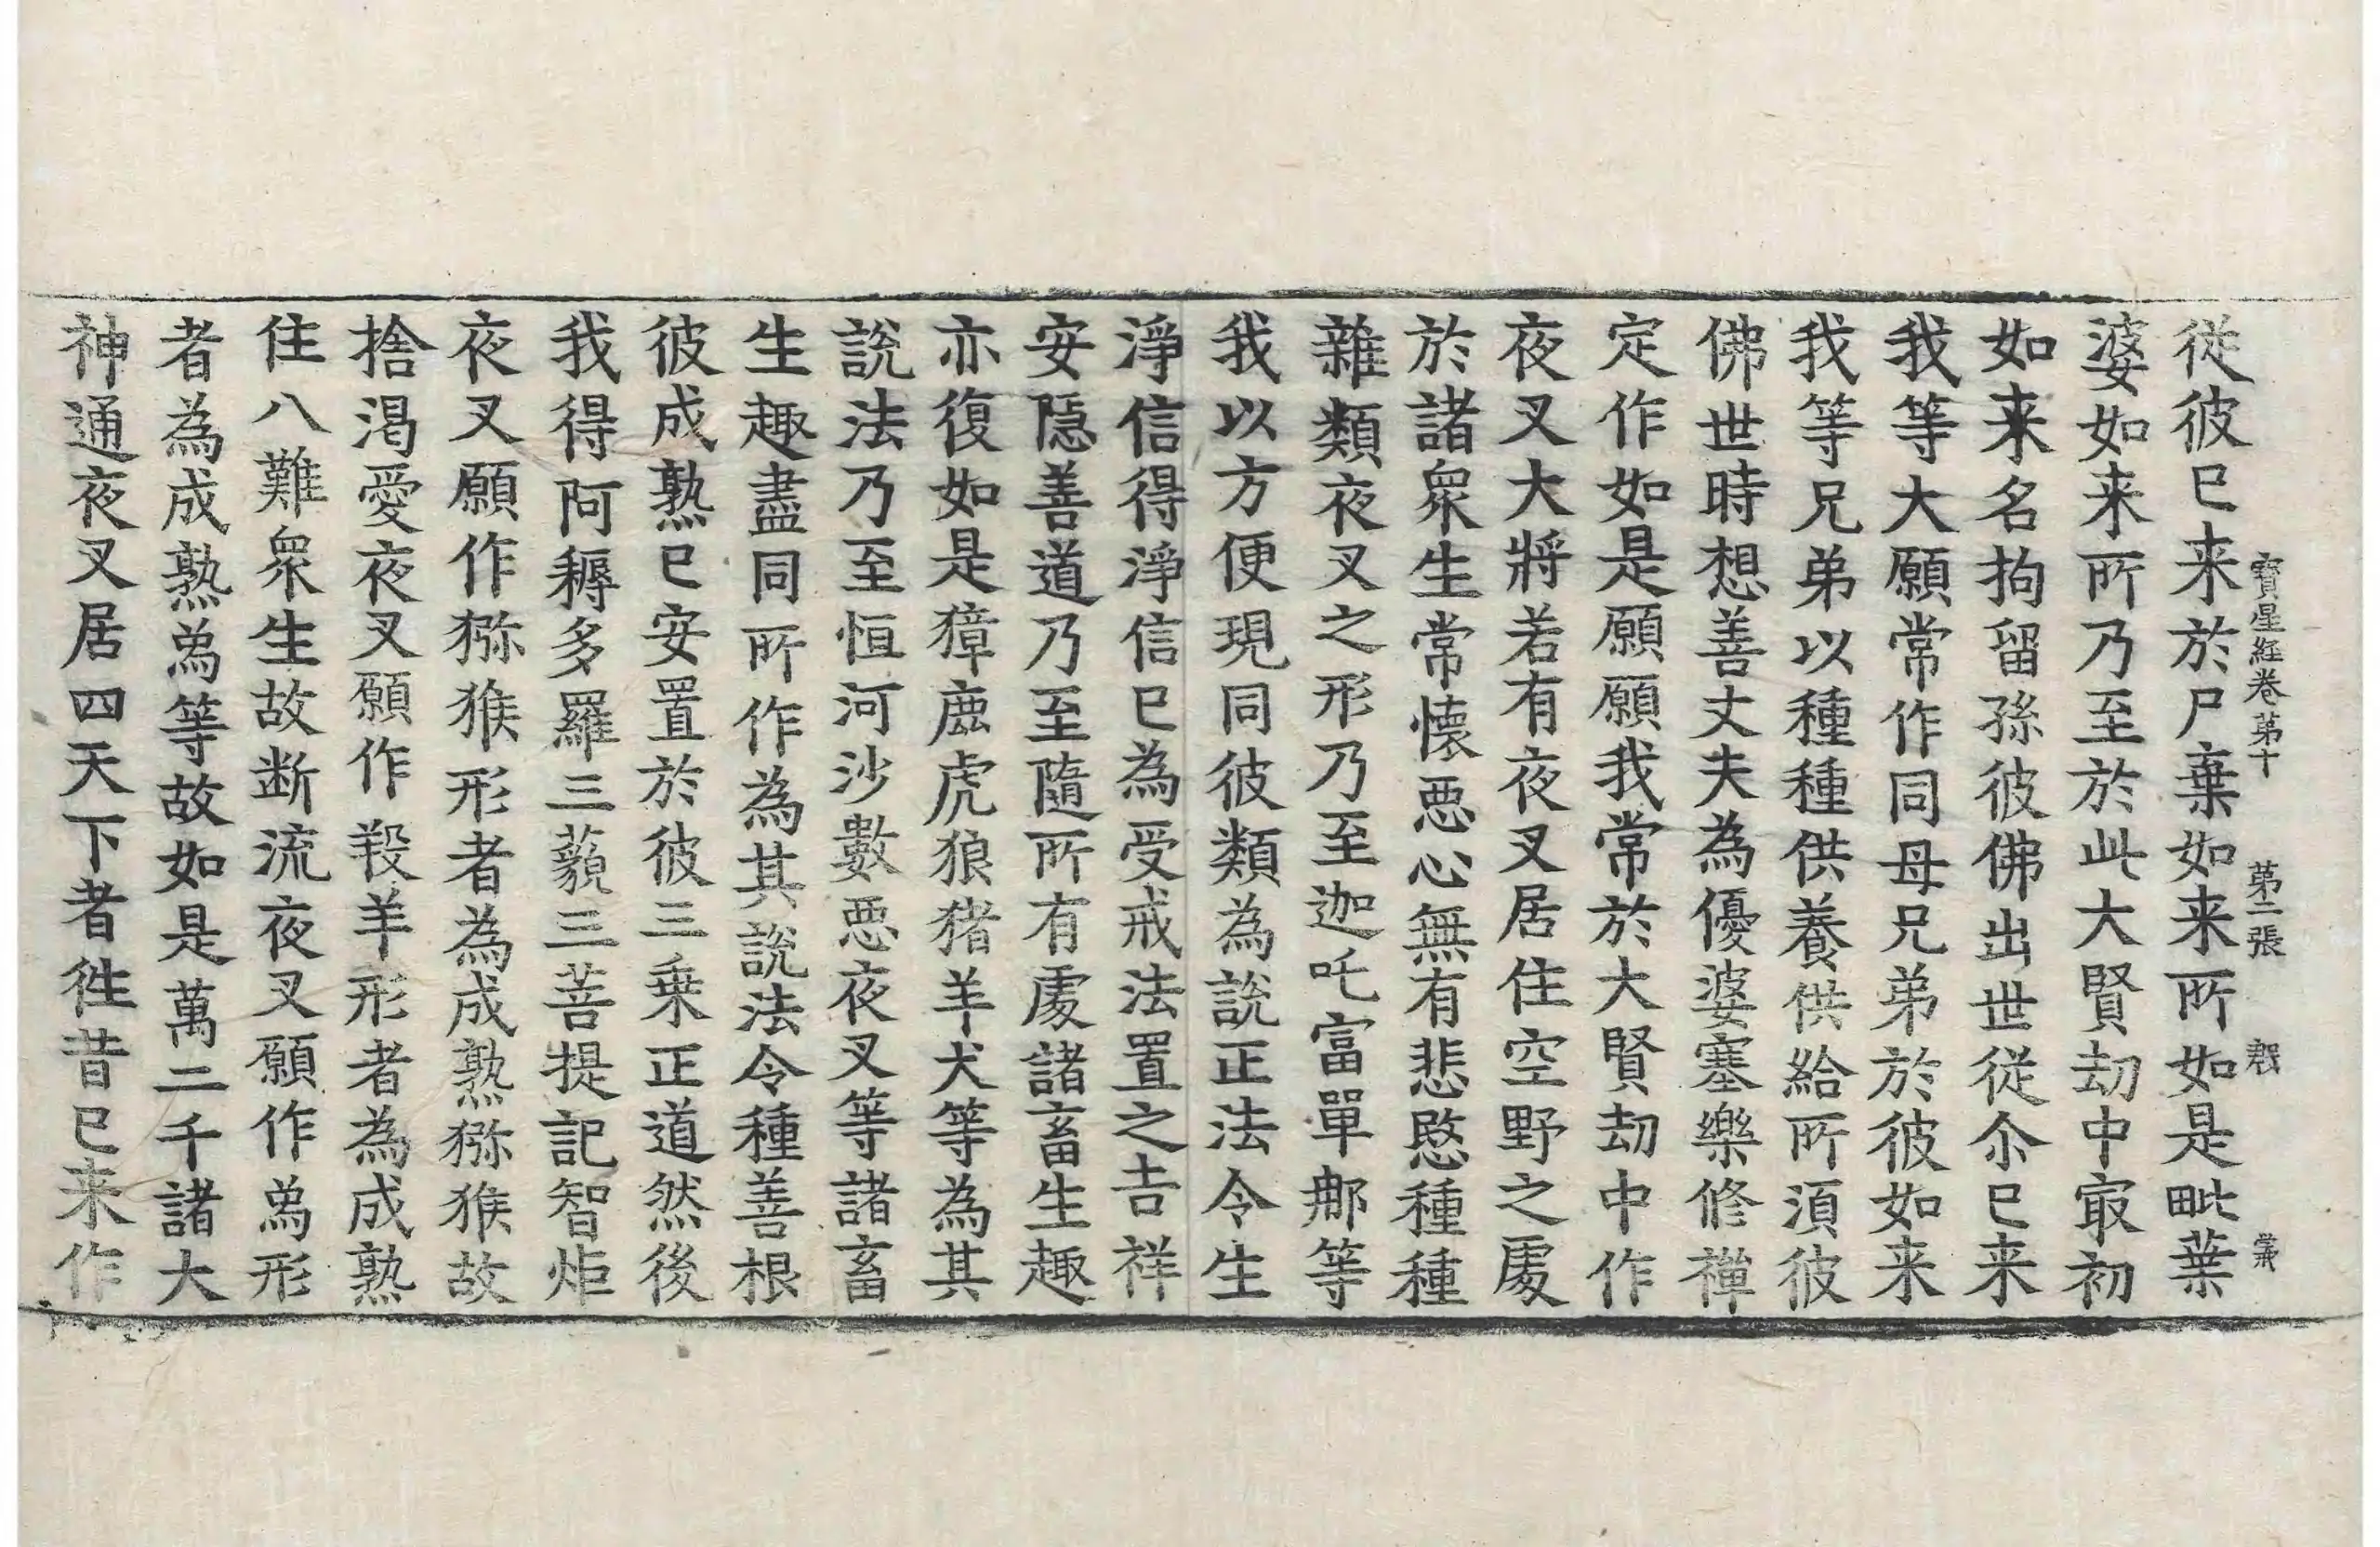 寶星経卷第十 第二張 𣪊 常
從彼已来於尸棄如来所如是毗葉
婆如来所乃至於此大賢劫中㝡初
如来名拘留孫彼佛出世從尒已来
我等大願常作同母兄弟於彼如来
我等兄弟以種種供養供給所須彼
佛世時想善丈夫為優婆塞樂修禪
定作如是願願我常於大賢劫中作
夜叉大將若有夜叉居住空野之處
於諸衆生常懷惡心無有悲愍種種
雜類夜叉之形乃至迦吒富單那等
我以方便現同彼類為說正法令生
淨信得淨信已為受戒法置之吉祥
安隱善道乃至隨所有處諸畜生趣
亦復如是獐鹿虎狼猪羊犬等為其
說法乃至恒河沙數惡夜叉等諸畜
生趣盡同所作為其說法令種善根
彼成熟已安置於彼三乗正道然後
我得阿耨多羅三藐三菩提記智炬
夜叉願作猕猴形者為成熟猕猴故
捨渇愛夜叉願作羖羊形者為成熟
住八難衆生故断流夜叉願作𫝕形
者為成熟𫝕等故如是萬二千諸大
神通夜叉居四天下者徃昔已来作